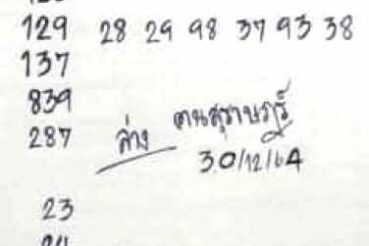 129 28 29 98 37 93 38
137
839
287 ล่าง คนสุราษฎร์
30/12/64
23